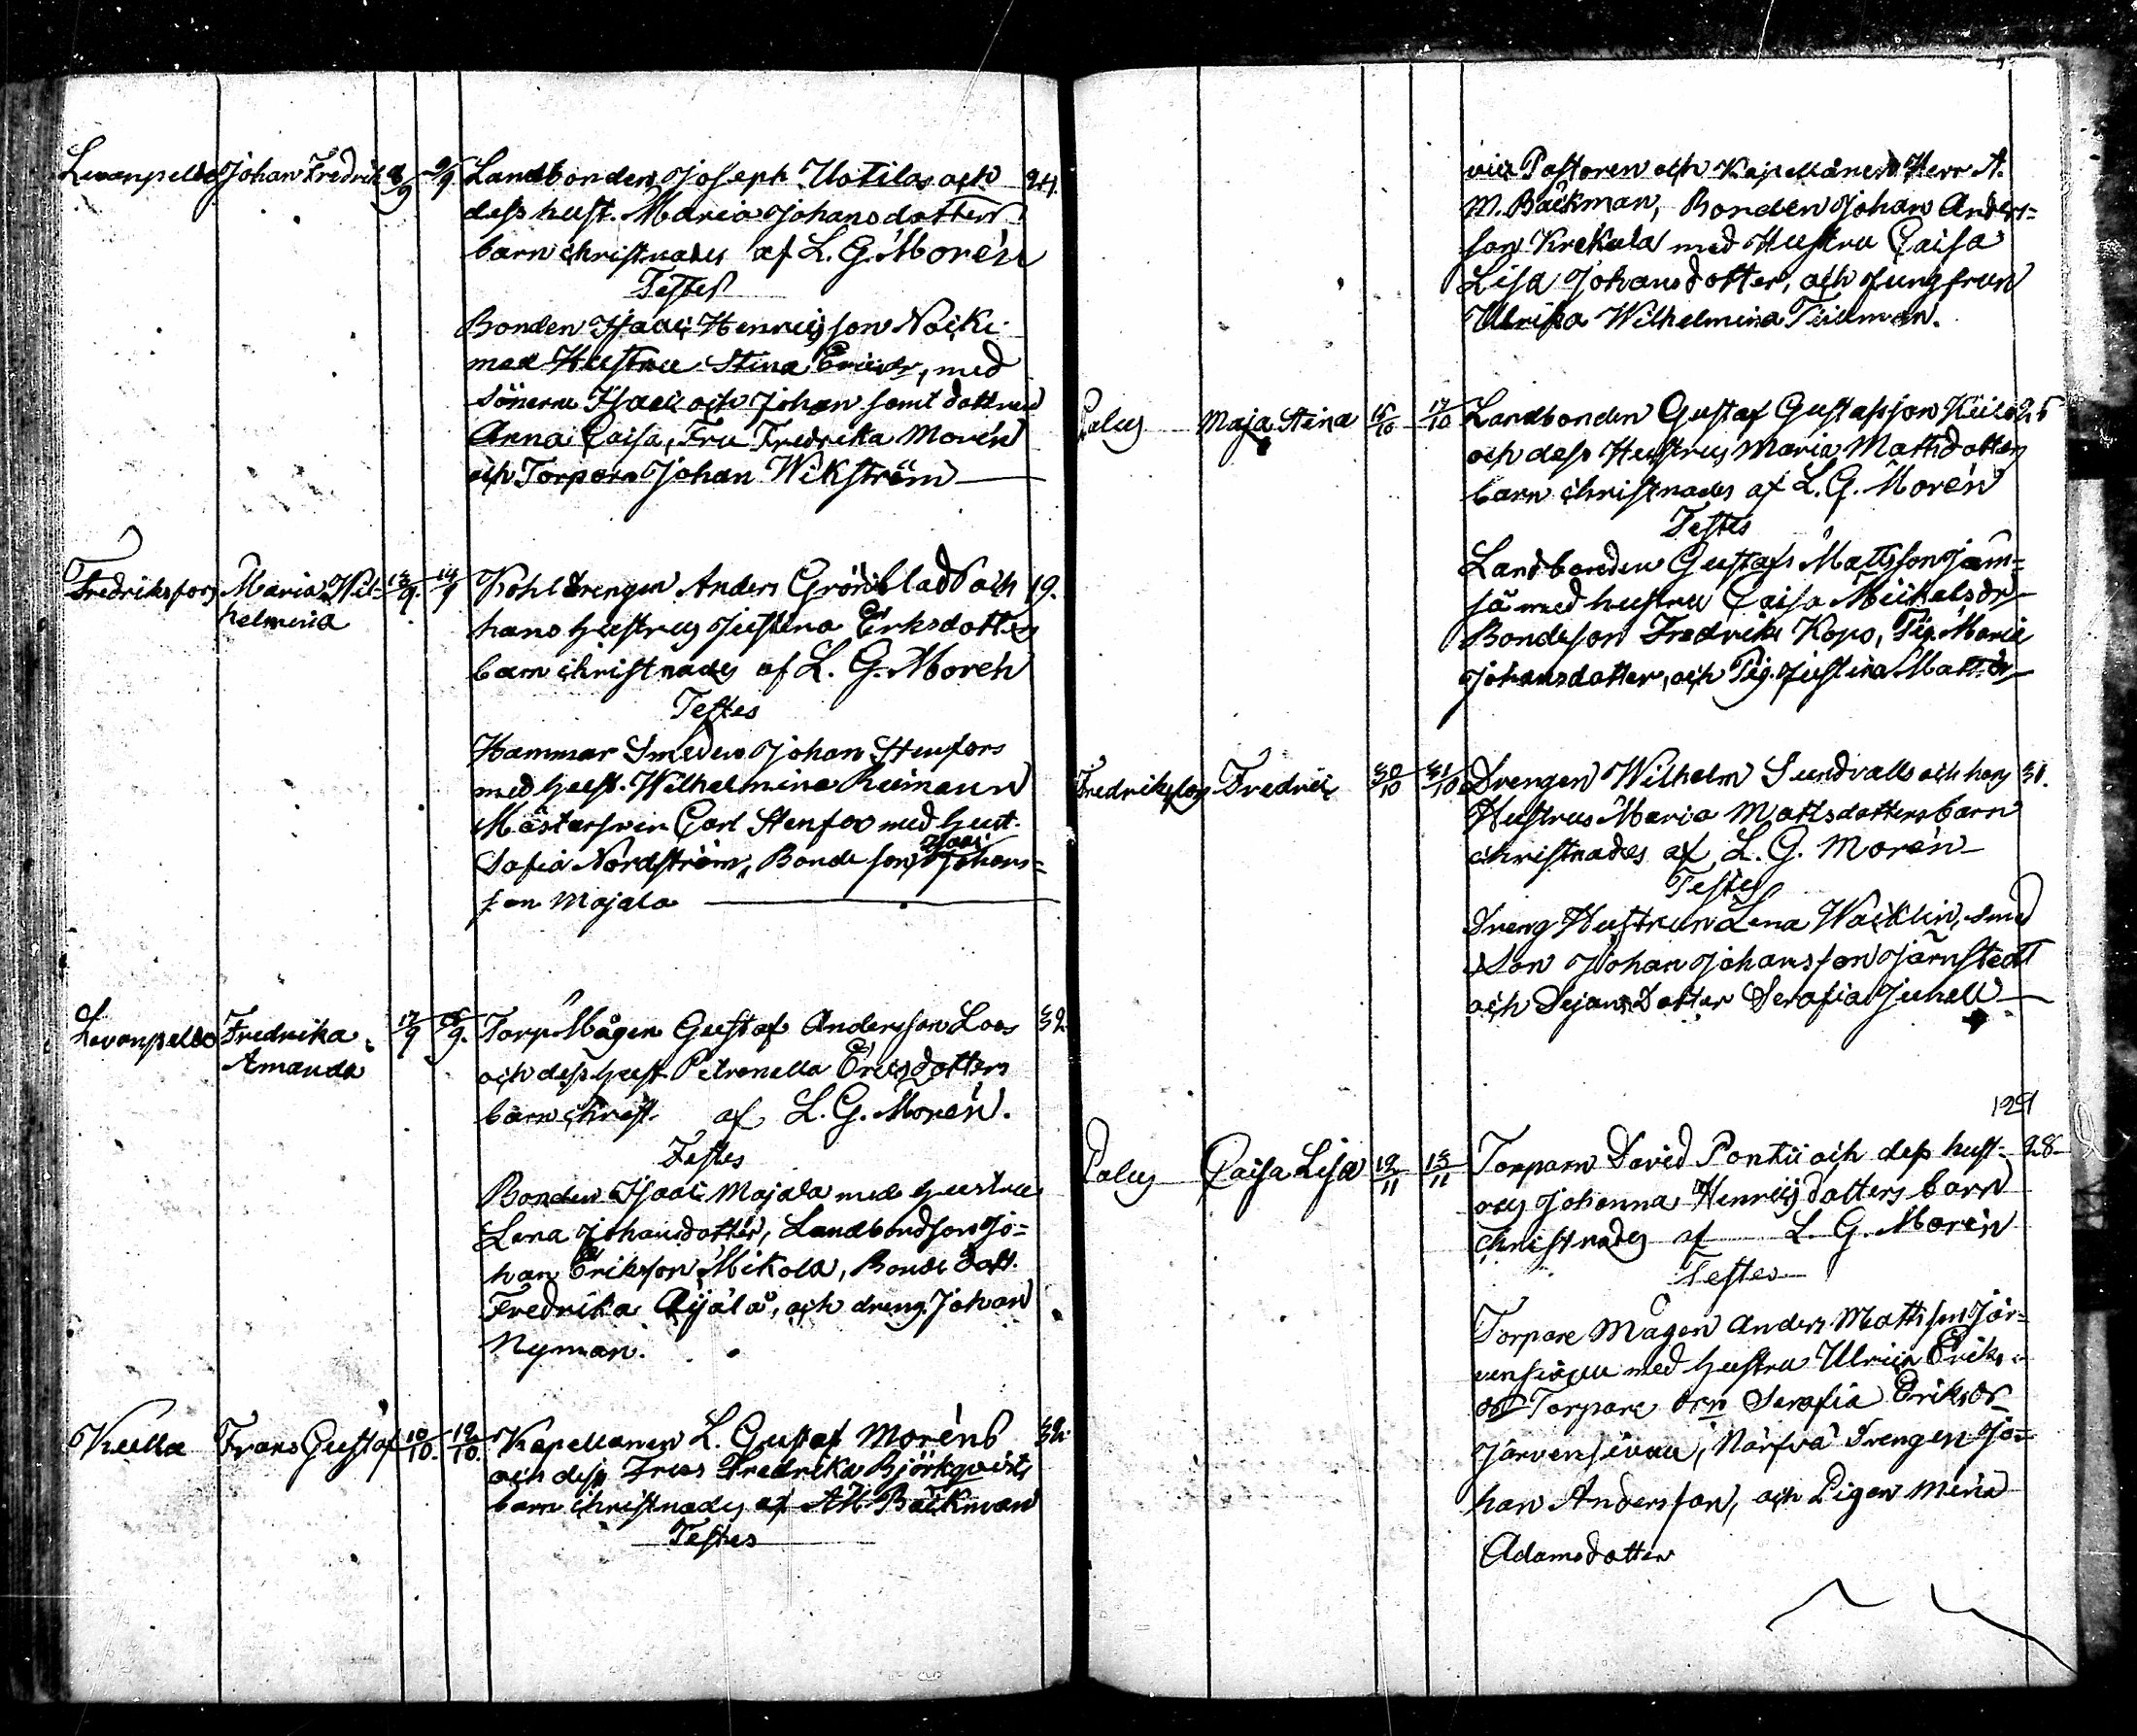 Levanpelto Johan Fredrik 8/9 9/9 Landbonden Joseph Uotilas och 24.
dess hust. Maria Johansdotters
barn christnades af L. G. Morén
Testes
Bonden Isaac Henricsson Näcki
med Hustru Stina Ericsdr, med
Sönerne Isaac och Johan samt dottren
Anna Caisa, Fru Fredrika Morén
och Torparn Johan Wikström
Fredriksfors Maria Wil- 13/9. 14/9 Kohldrengen Anders Grönblads och 19.
helmina hans hustrus Justina Eriksdotters
barn christnades af L. G. Morén
Testes
Hammar Smeden Johan Stenfors
med hust. Wilhelmina Reimann
Mästersven Carl Stenfors med hust.
Isaac
Sofia Nordström, Bondeson Johans-
son Majala
Levanpelto Fredrika 17/9 9. Torp. Mågen Gustaf Andersson Loos 32.
Amanda och dess hust. Petronella Ericsdotters
barn christ. af L. G. Morén.
Testes
Bonden Isaac Majala med hustru
Lena Johansdotter, Landbondson Jo-
han Erikson Mikola, Bonde dott.
Fredrika Äijälä, och dreng. Johan
Nyman.
Kulla Frans Gustaf 10/10. 12/10. Kapellanen L. Gustaf Moréns 32.
och dess Frus Fredrika Björkqvists
barn christnades af A M Bäckman
Testes
vice Pastoren och Kapellanen Herr A.
M. Bäckman, Bonden Johan Anders-
son Krekula med Hustru Caisa
Lisa Johansdotter, och Jungfrun
Ulrika Wilhelmina Teideman.
Palus Maja Stina 15/10 17/10 Landbonden Gustaf Gustafsson 25
och dess Hustrus Maria Mattsdotters
barn christnades af L. G. Morén
Testes
Landbonden Gustaf Mattsson Jäm-
sä med hustru Caisa Mickelsdr
Bondeson Fredrik Kopo, Pig. Maria
Johansdotter, och Pig. Justina Mattsdr
Fredriksfors Fredric 30/10 31/10. Drengen Wilhelm Sundvalls och hans 31.
Hustrus Maria Mattsdotters barn
christnades af L. G. Morén
Testes
Dreng Hustrun Lena Wäcklin, Smed
Son Johan Johansson Järnstedt
och Dejans Dotter Serafia Junell
129
Palus Caisa Lisa 12/11 13/11 Torparn David Pontii och dess hust- 28
rus Johanna Henricsdotters barn
Christnades af L. G. Morén
Testes
Torpare Mågen Anders Mattsson Jär-
vensivu med hustru Ulrica Eriks-
dr Torpare Serafia Eriksdr
Järvensivu, Närfvä Drengen Jo-
han Andersson, och Pigan Mina
Adamsdotter